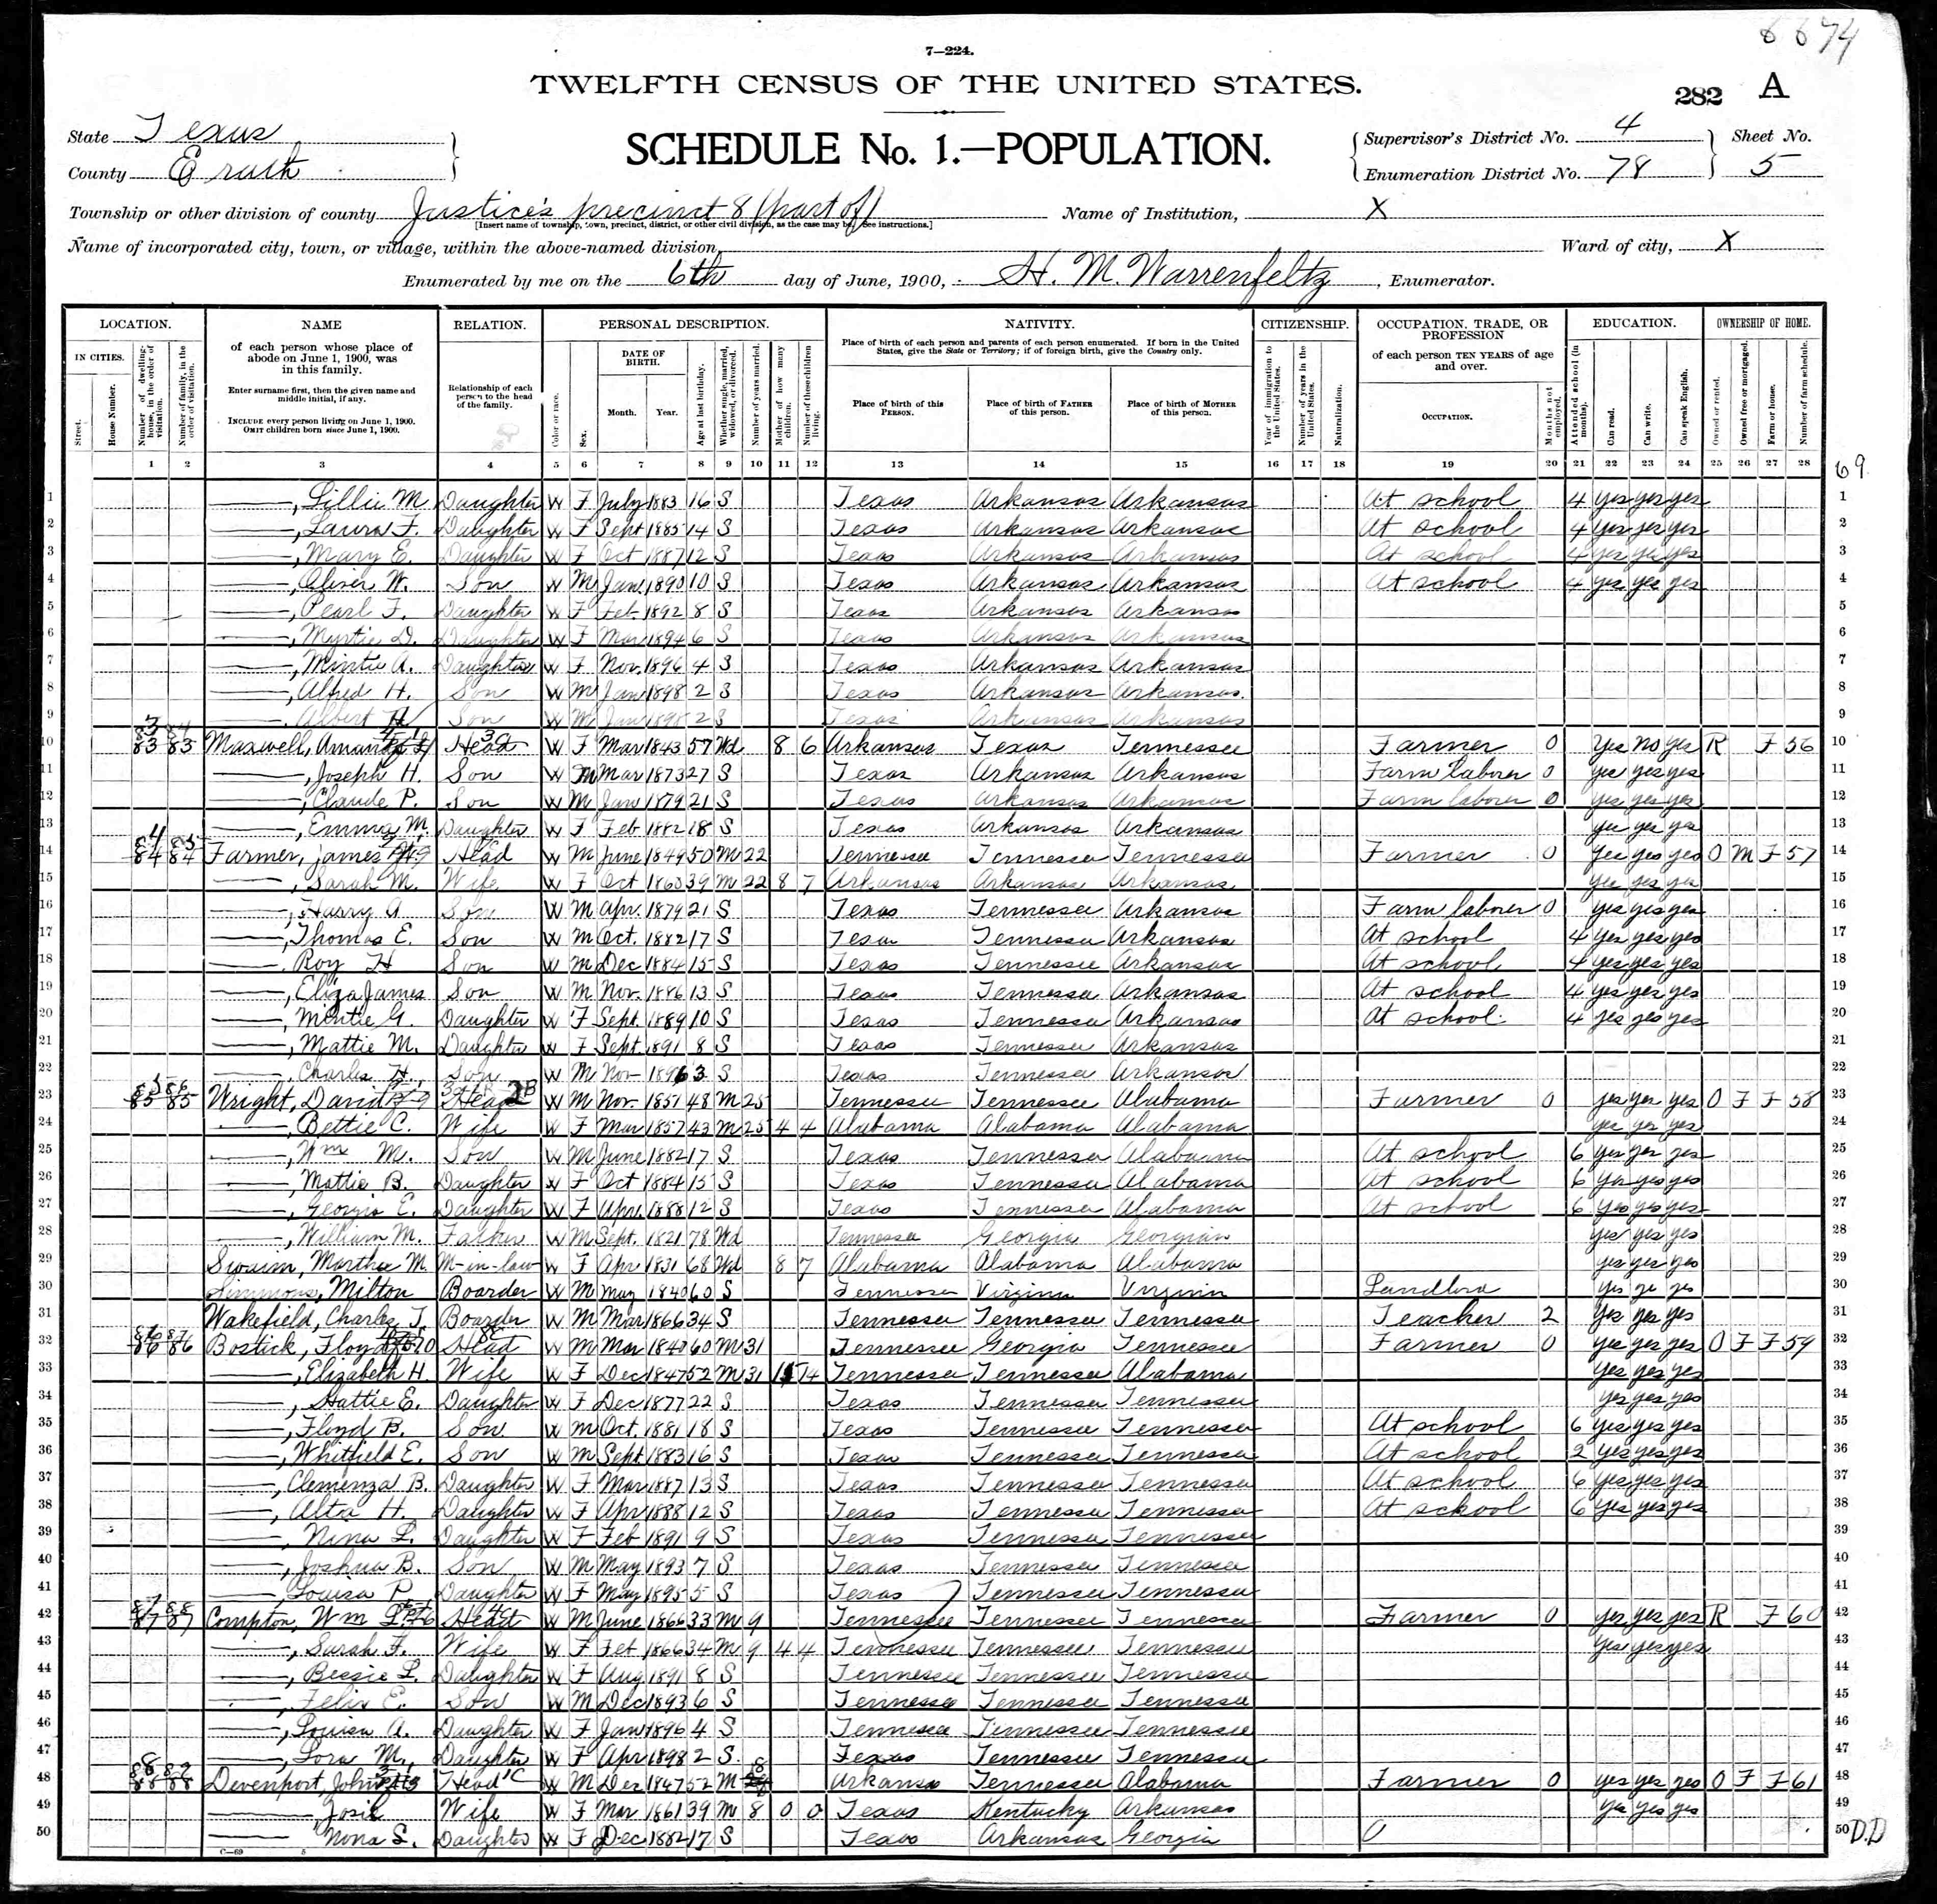 6 674
7—224.
TWELFTH CENSUS OF THE UNITED STATES.
282 A
State Texas
SCHEDULE No. 1.—POPULATION.
Supervisor's District No. 4 Sheet No.
County Erath
Enumeration District No. 78 5
Township or other division of county Justice's precinct 8 (part of) Name of Institution, X
[Insert name of township, town, precinct, district, or other civil division, as the case may be. See instructions.]
Name of incorporated city, town, or village, within the above-named division, Ward of city, X
Enumerated by me on the 6th day of June, 1900, H. M. Warrenfeltz, Enumerator.
LOCATION. NAME RELATION. PERSONAL DESCRIPTION. NATIVITY. CITIZENSHIP. OCCUPATION, TRADE, OR PROFESSION EDUCATION. OWNERSHIP OF HOME.
IN CITIES. Street. House Number. Number of dwelling-house, in the order of visitation. Number of family, in the order of visitation.
of each person whose place of abode on June 1, 1900, was in this family.
Enter surname first, then the given name and middle initial, if any.
INCLUDE every person living on June 1, 1900. OMIT children born since June 1, 1900.
Relationship of each person to the head of the family.
Color or race. Sex. DATE OF BIRTH. Month. Year. Age at last birthday. Whether single, married, widowed, or divorced. Number of years married. Mother of how many children. Number of these children living.
Place of birth of each person and parents of each person enumerated. If born in the United States, give the State or Territory; if of foreign birth, give the Country only.
Place of birth of this PERSON. Place of birth of FATHER of this person. Place of birth of MOTHER of this person.
Year of immigration to the United States. Number of years in the United States. Naturalization.
of each person TEN YEARS of age and over.
OCCUPATION. Months not employed.
Attended school (in months). Can read. Can write. Can speak English.
Owned or rented. Owned free or mortgaged. Farm or house. Number of farm schedule.
1 2 3 4 5 6 7 8 9 10 11 12 13 14 15 16 17 18 19 20 21 22 23 24 25 26 27 28 69
1 ——, Lillie M. Daughter W F July 1883 16 S Texas Arkansas Arkansas At school 4 yes yes yes 1
2 ——, Laura F. Daughter W F Sept 1885 14 S Texas Arkansas Arkansas At school 4 yes yes yes 2
3 ——, Mary E. Daughter W F Oct 1887 12 S Texas Arkansas Arkansas At school 4 yes yes yes 3
4 ——, Oliver W. Son W M Jan 1890 10 S Texas Arkansas Arkansas At school 4 yes yes yes 4
5 ——, Pearl F. Daughter W F Feb. 1892 8 S Texas Arkansas Arkansas 5
6 ——, Myrtie D. Daughter W F Mar 1894 6 S Texas Arkansas Arkansas 6
7 ——, Mintie A. Daughter W F Nov. 1896 4 S Texas Arkansas Arkansas 7
8 ——, Alfred H. Son W M Jan 1898 2 S Texas Arkansas Arkansas. 8
9 ——, Albert H Son W M Jan 1898 2 S Texas Arkansas Arkansas 9
10 83 83 Maxwell, Amanda Head W F Mar 1843 57 Wd 8 6 Arkansas Texas Tennessee Farmer 0 yes no yes R F 56 10
11 ——, Joseph H. Son W M Mar 1873 27 S Texas Arkansas Arkansas Farm laborer 0 yes yes yes 11
12 ——, Claude P. Son W M Jan 1879 21 S Texas Arkansas Arkansas Farm laborer 0 yes yes yes 12
13 ——, Emma M. Daughter W F Feb 1882 18 S Texas Arkansas Arkansas yes yes yes 13
14 84 84 Farmer, James Head W M June 1849 50 M 22 Tennessee Tennessee Tennessee Farmer 0 yes yes yes O M F 57 14
15 ——, Sarah M. Wife W F Oct 1860 39 M 22 8 7 Arkansas Arkansas Arkansas yes yes yes 15
16 ——, Harry A. Son W M Apr. 1879 21 S Texas Tennessee Arkansas Farm laborer 0 yes yes yes 16
17 ——, Thomas E. Son W M Oct. 1882 17 S Texas Tennessee Arkansas At school 4 yes yes yes 17
18 ——, Roy H Son W M Dec 1884 15 S Texas Tennessee Arkansas At school 4 yes yes yes 18
19 ——, Eliza James Son W M Nov. 1886 13 S Texas Tennessee Arkansas At school 4 yes yes yes 19
20 ——, Mintie G. Daughter W F Sept. 1889 10 S Texas Tennessee Arkansas At school 4 yes yes yes 20
21 ——, Mattie M. Daughter W F Sept. 1891 8 S Texas Tennessee Arkansas 21
22 ——, Charles H. Son W M Nov 1896 3 S Texas Tennessee Arkansas 22
23 85 85 Wright, David Head W M Nov. 1851 48 M 25 Tennessee Tennessee Alabama Farmer 0 yes yes yes O F F 58 23
24 ——, Bettie C. Wife W F Mar 1857 43 M 25 4 4 Alabama Alabama Alabama yes yes yes 24
25 ——, Wm M. Son W M June 1882 17 S Texas Tennessee Alabama At school 6 yes yes yes 25
26 ——, Mattie B. Daughter W F Oct 1884 15 S Texas Tennessee Alabama At school 6 yes yes yes 26
27 ——, Georgia E. Daughter W F Apr. 1888 12 S Texas Tennessee Alabama At school 6 yes yes yes 27
28 ——, William M. Father W M Sept. 1821 78 Wd Tennessee Georgia Georgia yes yes yes 28
29 Swaim, Martha M. M-in-law W F Apr 1831 68 Wd 8 7 Alabama Alabama Alabama yes yes yes 29
30 Simmons, Milton Boarder W M May 1840 60 S Tennessee Virginia Virginia Landlord yes yes yes 30
31 Wakefield, Charles T. Boarder W M Mar 1866 34 S Tennessee Tennessee Tennessee Teacher 2 yes yes yes 31
32 86 86 Bostick, Floyd Head W M Mar 1840 60 M 31 Tennessee Georgia Tennessee Farmer 0 yes yes yes O F F 59 32
33 ——, Elizabeth H. Wife W F Dec 1847 52 M 31 14 Tennessee Tennessee Alabama yes yes yes 33
34 ——, Hattie E. Daughter W F Dec 1877 22 S Texas Tennessee Tennessee yes yes yes 34
35 ——, Floyd B. Son W M Oct. 1881 18 S Texas Tennessee Tennessee At school 6 yes yes yes 35
36 ——, Whitfield E. Son W M Sept 1883 16 S Texas Tennessee Tennessee At school 2 yes yes yes 36
37 ——, Clemenza B. Daughter W F Mar 1887 13 S Texas Tennessee Tennessee At school 6 yes yes yes 37
38 ——, Alta H. Daughter W F Apr 1888 12 S Texas Tennessee Tennessee At school 6 yes yes yes 38
39 ——, Nina L. Daughter W F Feb 1891 9 S Texas Tennessee Tennessee 39
40 ——, Joshua B. Son W M May 1893 7 S Texas Tennessee Tennessee 40
41 ——, Louisa P. Daughter W F May 1895 5 S Texas Tennessee Tennessee 41
42 87 87 Compton, Wm L. Head W M June 1866 33 M 9 Tennessee Tennessee Tennessee Farmer 0 yes yes yes R F 60 42
43 ——, Sarah F. Wife W F Feb 1866 34 M 9 4 4 Tennessee Tennessee Tennessee yes yes yes 43
44 ——, Bessie L. Daughter W F Aug 1891 8 S Tennessee Tennessee Tennessee 44
45 ——, Felix E. Son W M Dec 1893 6 S Tennessee Tennessee Tennessee 45
46 ——, Louisa A. Daughter W F Jan 1896 4 S Tennessee Tennessee Tennessee 46
47 ——, Lora M. Daughter W F Apr 1898 2 S Texas Tennessee Tennessee 47
48 88 88 Devenport, John Head W M Dec 1847 52 M 8 Arkansas Tennessee Alabama Farmer 0 yes yes yes O F F 61 48
49 ——, Josie Wife W F Mar 1861 39 M 8 0 0 Texas Kentucky Arkansas yes yes yes 49
50 ——, Nona L. Daughter W F Dec 1882 17 S Texas Arkansas Georgia 0 50 D.D
C—69